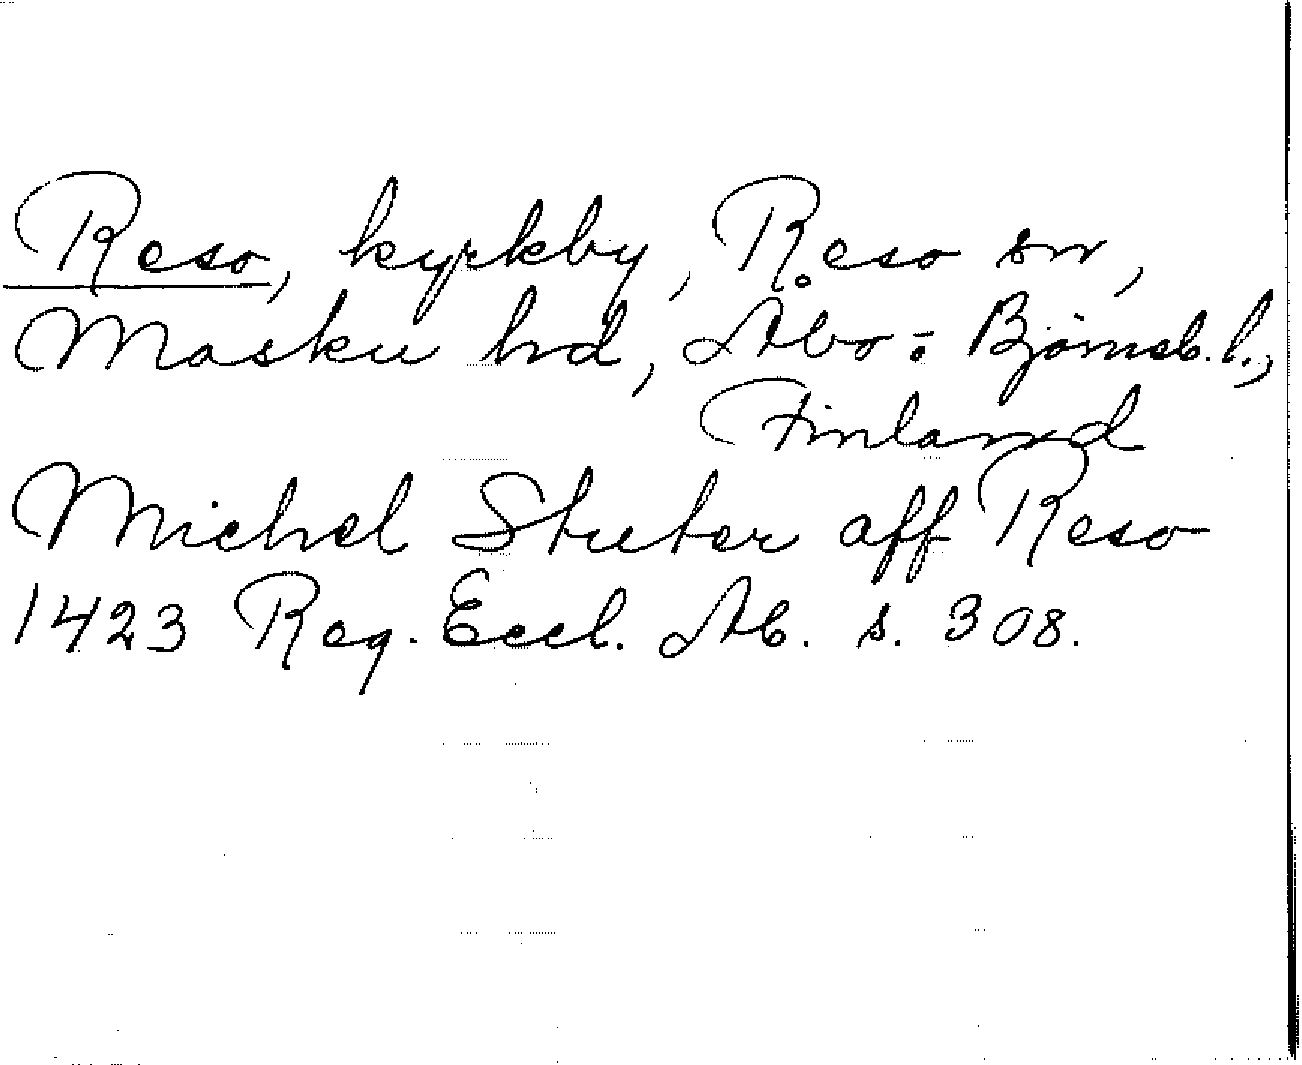 Reso, kyrkby, Reso sn,
Masku hd, Åbo-Björneb. l.,
Finland
Michel Stuber aff Reso
1423 Reg. Eccl. Ab. s. 308.